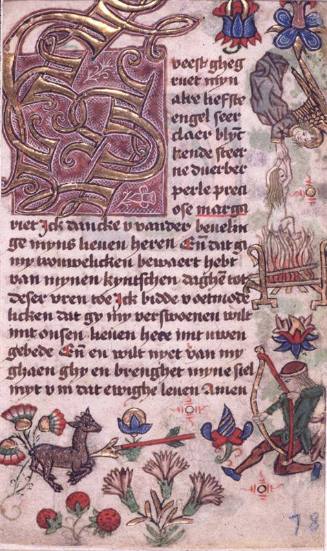 veest gheg
ruet myn
alre liefste
engel seer
claer blyc
kende steer
ne duerber
perle preci
ose marga
riet Ick dancke v vander bevelin
ge myns lieuen heren En dat gi
my vrouwelicken bewaert hebt
van mynen kyntschen daghen tot
deser vren toe Ick bidde v oetmode
licken dat gy my verswoenen wilt
mit onsen lieuen here mit uwen
gebede En en wilt nyet van my
ghaen ghy en brenghet myne siel
myt v in dat ewighe leuen Amen
78